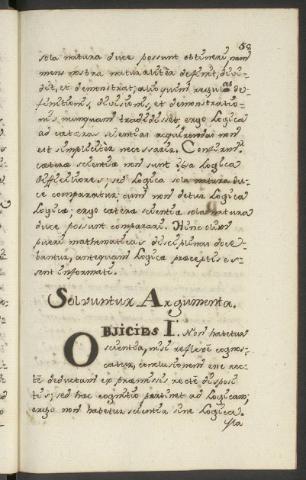 58
sola natura duce possunt obtineri, nam
mens nostra naturaliter definit, divi-
dit, et demonstrat; alioquin regulas de-
finitionis, divisionis, et demonstratio-
nis nunquam tradidisset. ergo Logica
ad cæteras scientias acquirendas non
est simpliciter necessaria.
cæteræ scientiæ non sunt Logica
difficiliores; sed Logica sola natura du-
ce comparatur, cum non detur Logica
Logicæ; ergo cæteræ scientiæ sola natura
duce possunt comparari. Hinc olim
pueri mathematicis disciplinis doce-
bantur, antequam Logicæ præceptis es-
sent informati.
Solvuntur Argumenta.
OBJICIES I. Non habetur
scientia, nisi reflexè cognos-
catur, conclusionem esse rec-
tè deductam ex præmissis rectè disposi-
tis; sed hæc cognitio pertinet ad Logicam;
ergo non habetur scientia sine Logica.